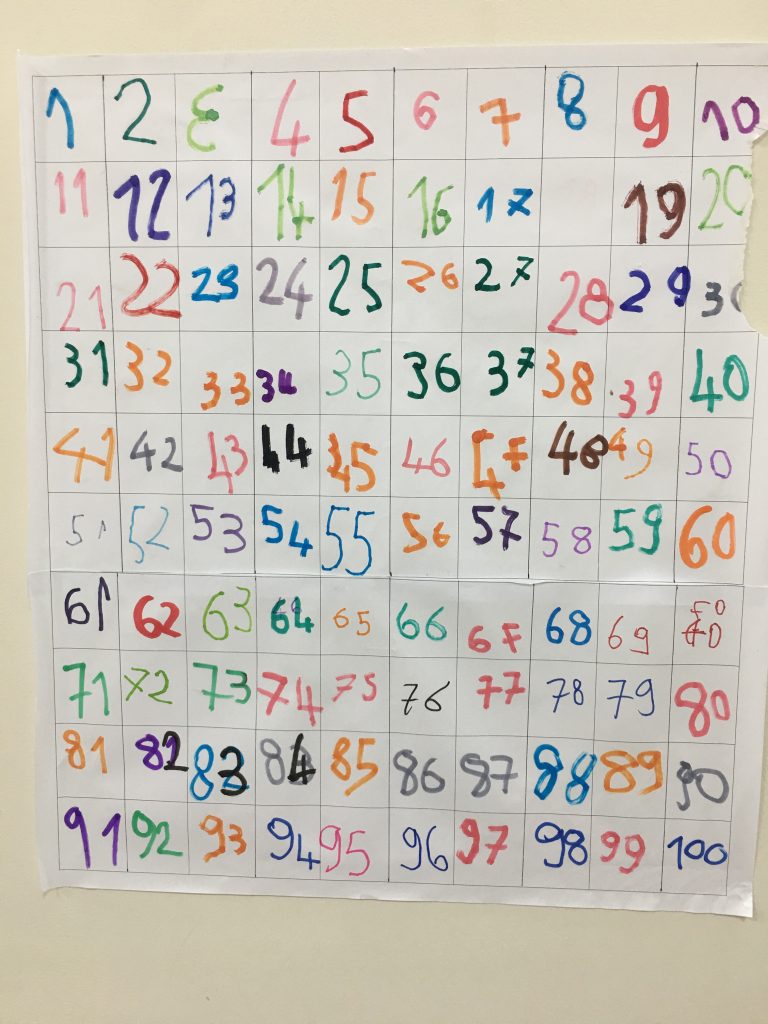 1 2 3 4 5 6 7 8 9 10
11 12 13 14 15 16 17 19 20
21 22 23 24 25 26 27 28 29 30
31 32 33 34 35 36 37 38 39 40
41 42 43 44 45 46 47 48 49 50
51 52 53 54 55 56 57 58 59 60
61 62 63 64 65 66 67 68 69 70
71 72 73 74 75 76 77 78 79 80
81 82 83 84 85 86 87 88 89 90
91 92 93 94 95 96 97 98 99 100